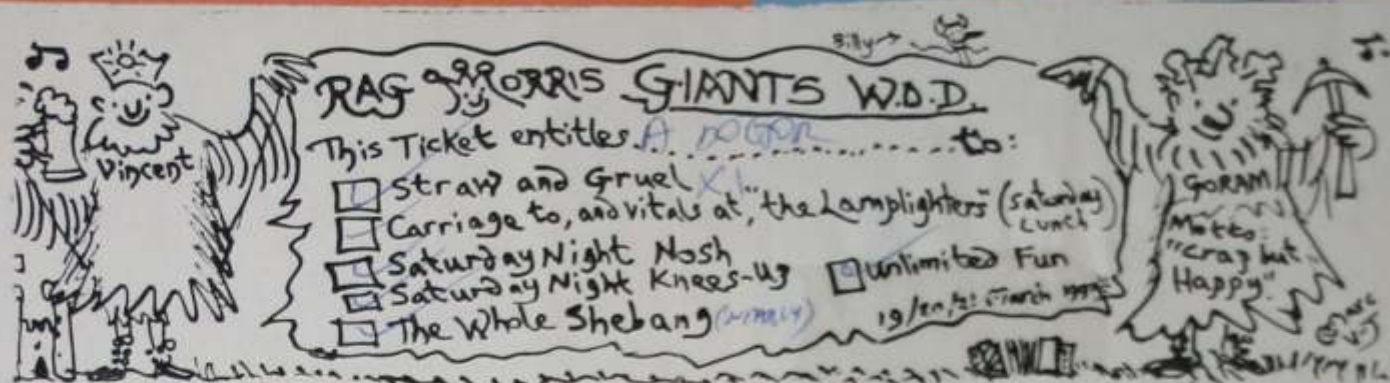 Billy→
RAG MORRIS GIANTS W.O.D.
This Ticket entitles A ROGER to:
Straw and Gruel X1
Carriage to, and vitals at, "the Lamplighters" (Saturday Lunch)
Saturday Night Nosh
Saturday Night Knees-Up
Unlimited Fun
The Whole Shebang
19/20/21 March
Vincent
GORAM
Motto:
"Crap but
Happy"